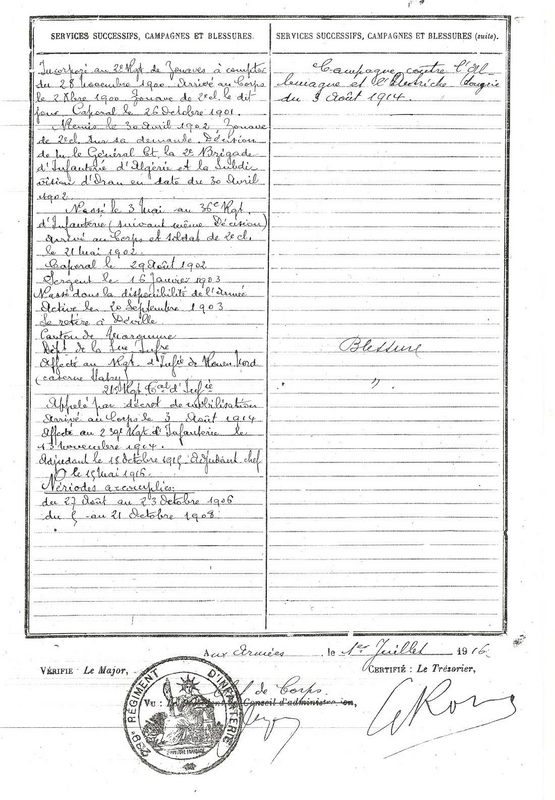 SERVICES SUCCESSIFS, CAMPAGNES ET BLESSURES.
Incorporé au 2e Rgt de Zouaves à compter
du 28 Novembre 1900. Arrivé au Corps
le 2 Xbre 1900. Zouave de 2e cl. le dit
jour Caporal le 26 Octobre 1901.
Remis le 30 Avril 1902 Zouave
de 2e cl. sur sa demande. Décision
de le Général Ct la 2e Brigade
d'Infanterie d'Algérie et la Subdi-
vision d'Oran en date du 30 Avril
1902
Passé le 3 Mai au 36e Rgt
d'Infanterie (suivant même Décision)
Arrivé au Corps et soldat de 2e cl.
le 21 mai 1902.
Caporal le 29 Août 1902
Sergent le 16 Janvier 1903
Passé dans la disponibilité de l'Armée
Active le 20 Septembre 1903
Se retire à Déville
Canton de Maromme
Dépt de la Infre
Affecté au Rgt d'Infie de Rouen Nord
(caserne Hatry)
21e Rgt d'Infie
Appelé par décret de mobilisation
Arrivé au Corps le 3 Août 1914
Affecté au 239e Rgt d'Infanterie le
13 novembre 1914.
Adjudant le 15 Octobre 1915 Adjudant chef
le 15 mai 1916.
Périodes accomplies:
du 27 Août au 23 Octobre 1906
du 5 au 21 Octobre 1908.
SERVICES SUCCESSIFS, CAMPAGNES ET BLESSURES (suite).
Campagne contre l'Al-
lemagne et l'Autriche Hongrie
du 3 Août 1914
Blessure
"
Aux Armées, le 1er Juillet 1916
VÉRIFIÉ Le Major,
CERTIFIÉ: Le Trésorier,
de Corps
VU: Conseil d'administration,
239e RÉGIMENT D'INFANTERIE